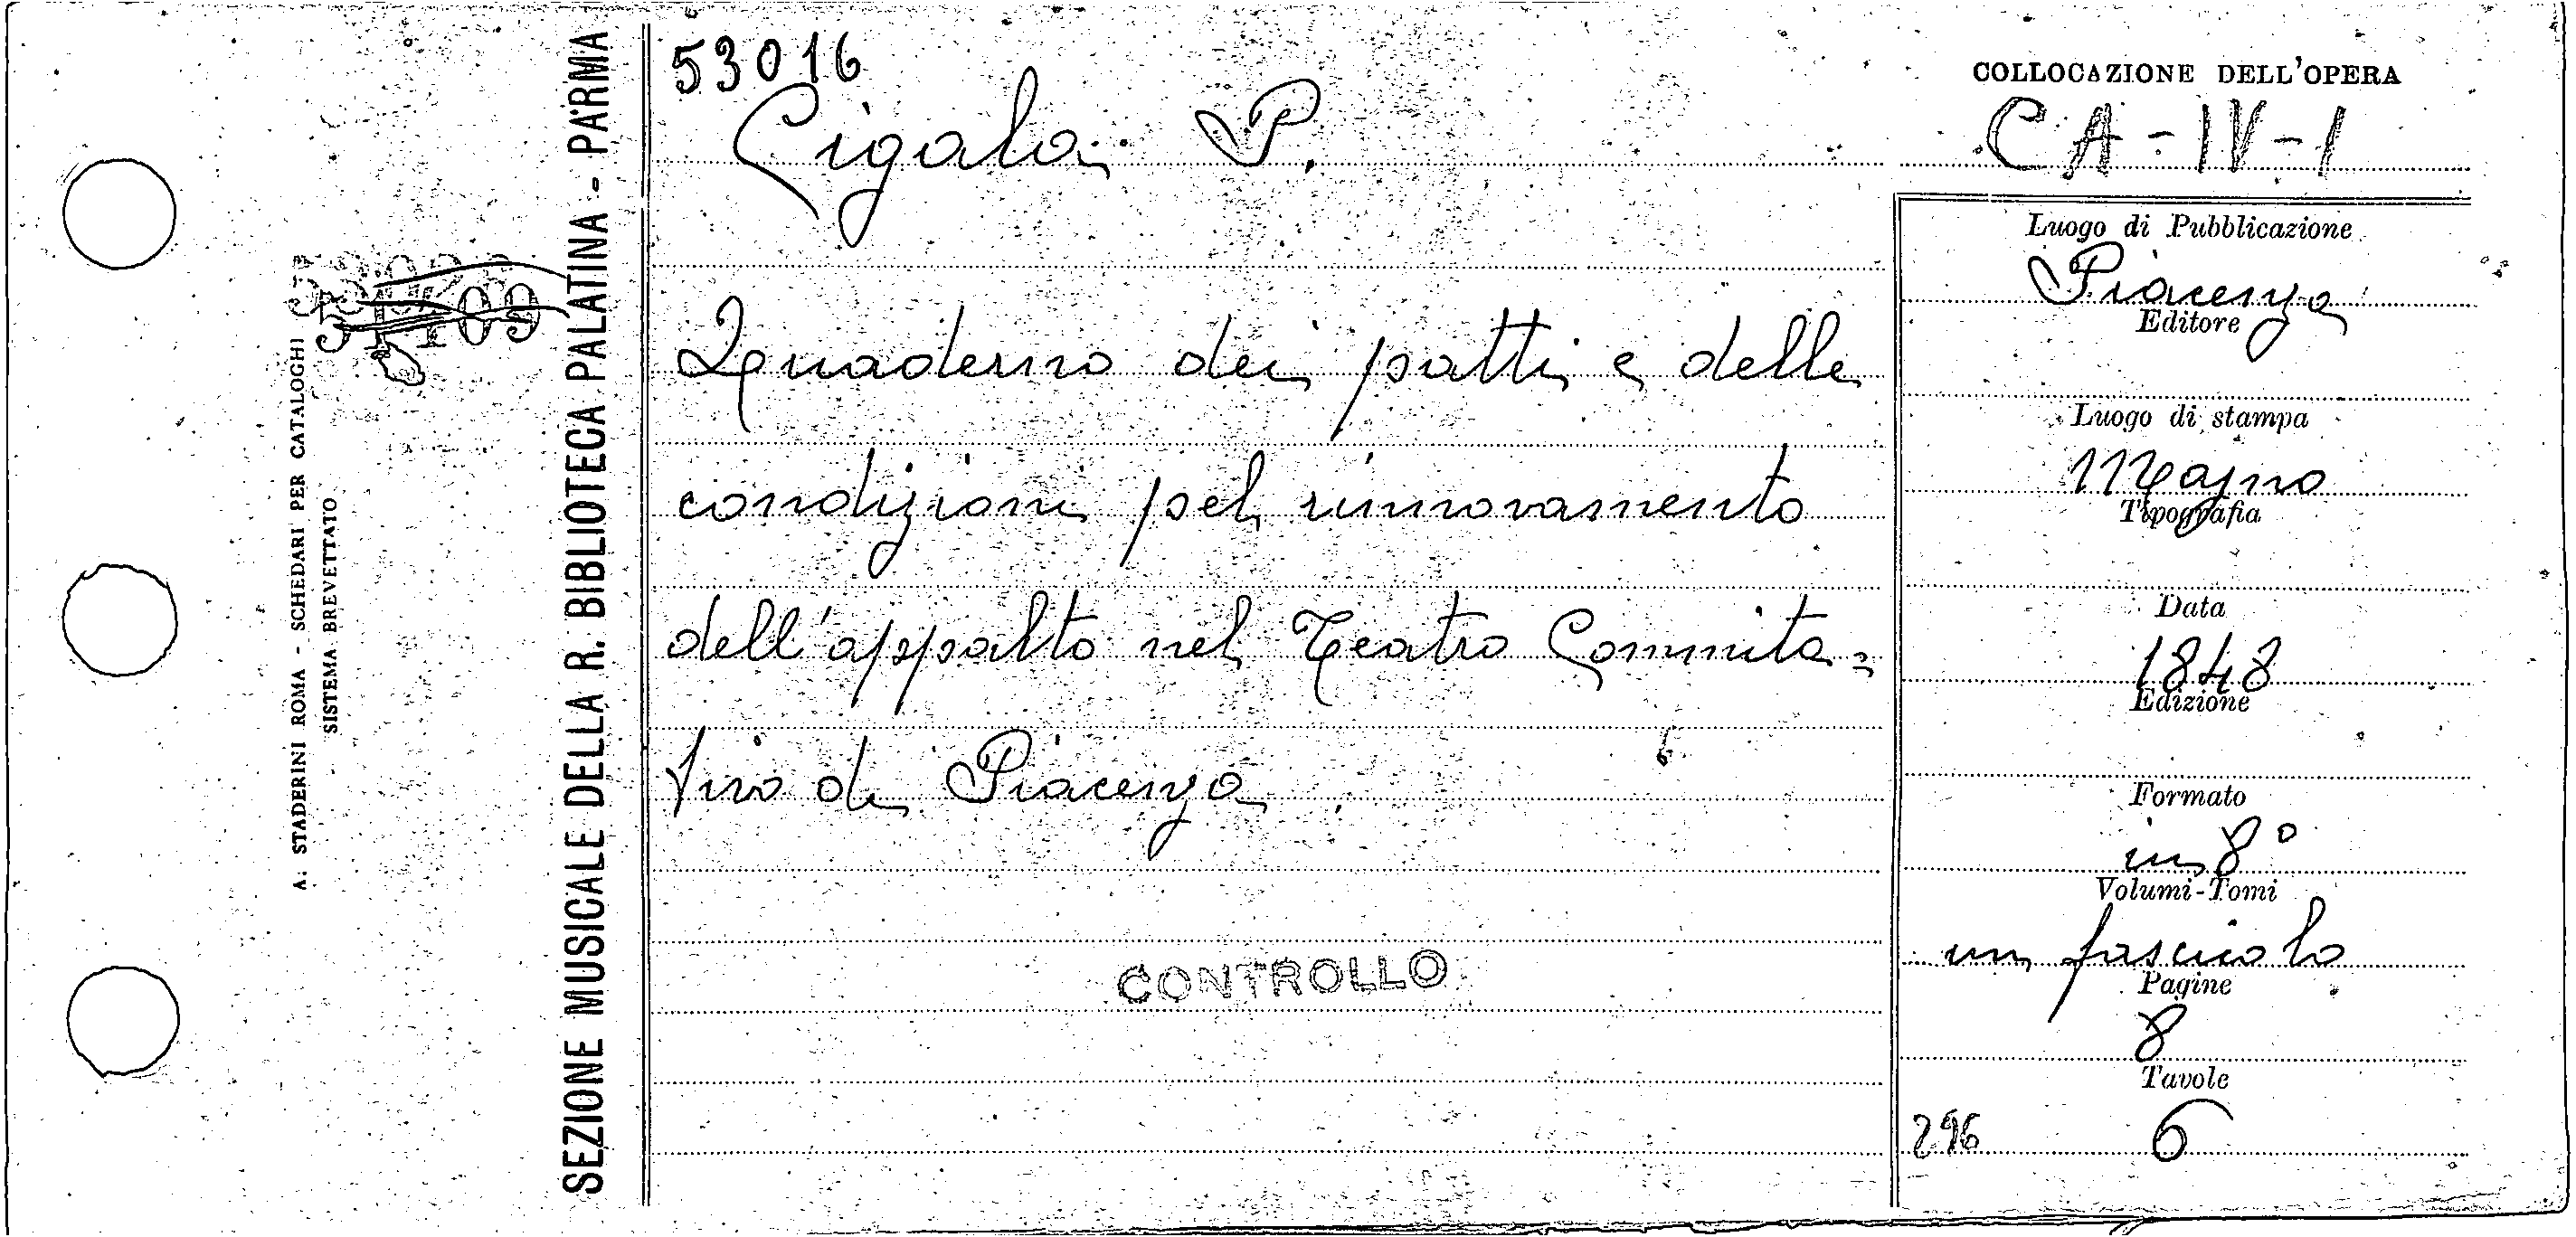 53016
Cigala P.
COLLOCAZIONE DELL'OPERA
CA-IV-1
Quaderno dei patti e delle
condizioni pel rinnovamento
dell'appalto nel Teatro Comunita=
tivo di Piacenza
CONTROLLO
Luogo di Pubblicazione
Piacenza
Editore
Luogo di stampa
Majno
Tipografia
Data
1848
Edizione
Formato
in 8°
Volumi-Tomi
un fascicolo
Pagine
8
Tavole
296 6
SEZIONE MUSICALE DELLA R. BIBLIOTECA PALATINA - PARMA
A. STADERINI ROMA - SCHEDARI PER CATALOGHI
SISTEMA BREVETTATO